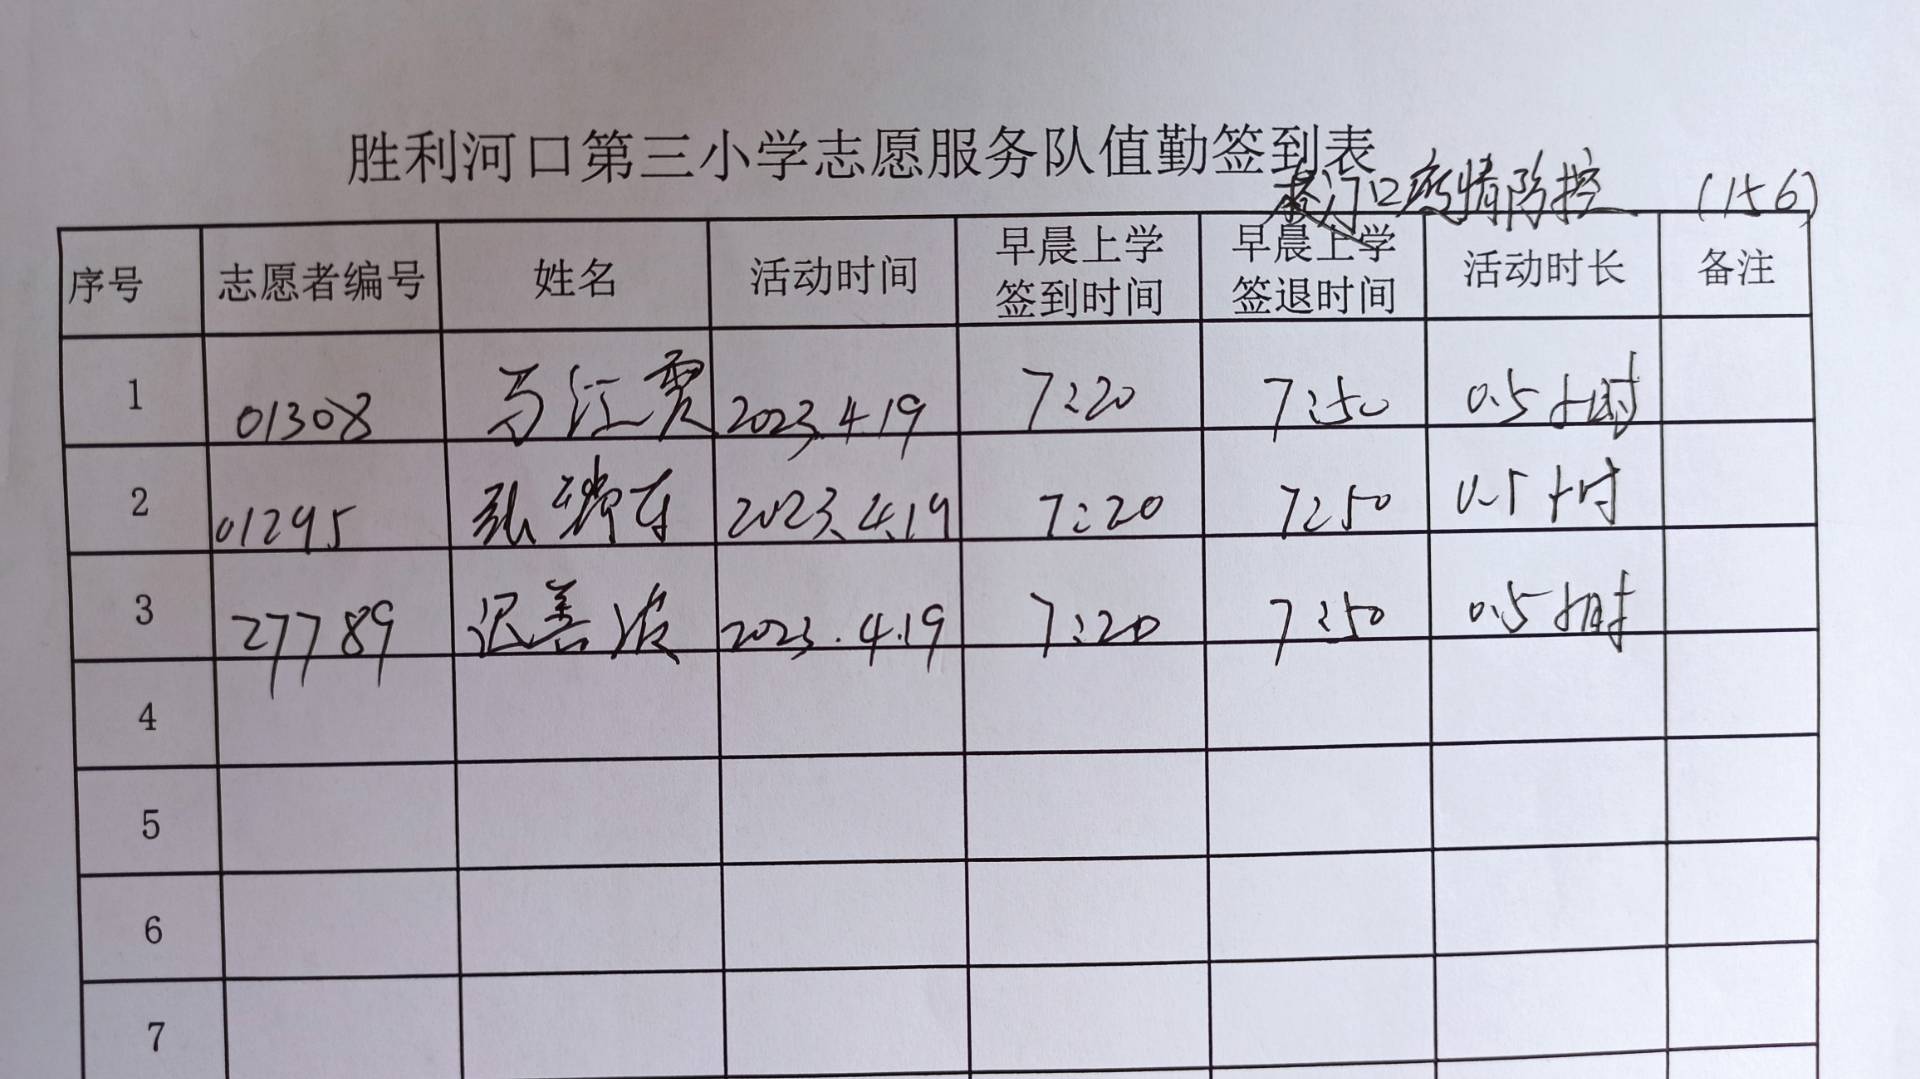 胜利河口第三小学志愿服务队值勤签到表
校门口疫情防控 (156)
序号 志愿者编号 姓名 活动时间 早晨上学签到时间 早晨上学签退时间 活动时长 备注
1 01308 马江霞 2023.4.19 7:20 7:50 0.5小时
2 01295 张瑞东 2023.4.19 7:20 7:50 0.5小时
3 27789 迟善波 2023.4.19 7:20 7:50 0.5小时
4
5
6
7